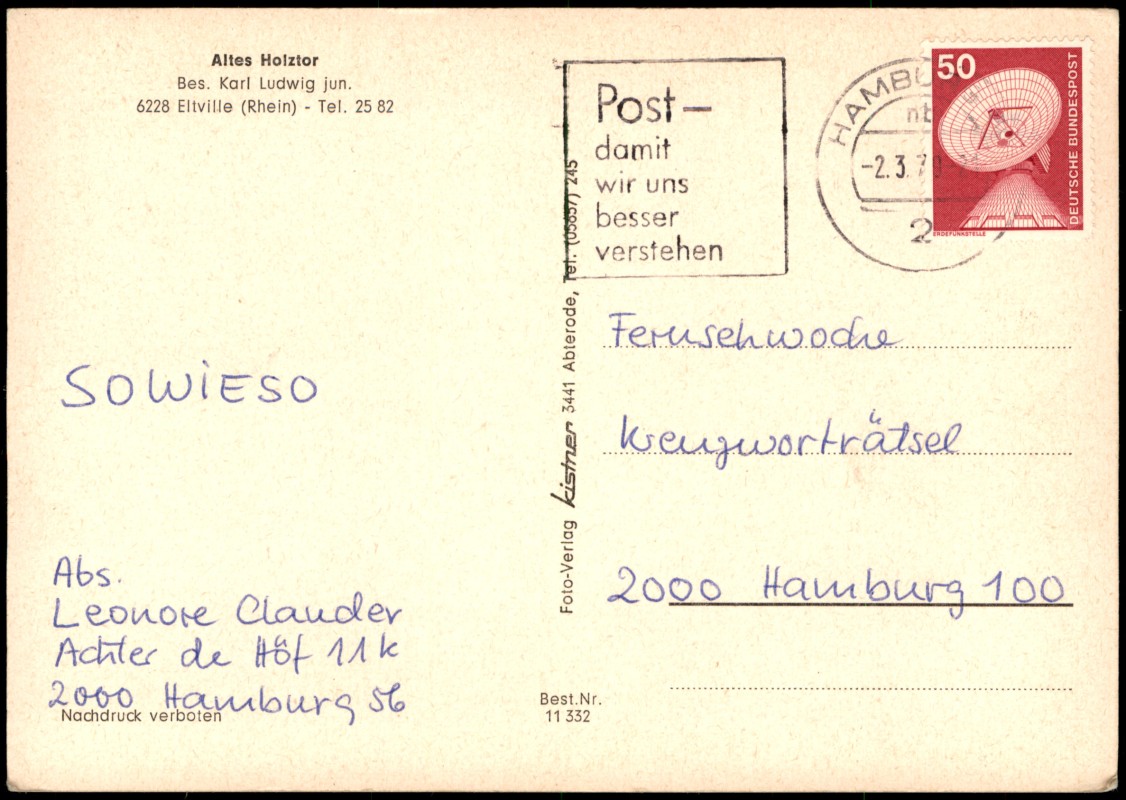 Altes Holztor
Bes. Karl Ludwig jun.
6228 Eltville (Rhein) - Tel. 25 82
Post –
damit
wir uns
besser
verstehen
HAMBU
-2.3.79
2
50
DEUTSCHE BUNDESPOST
ERDEFUNKSTELLE
Foto-Verlag kistner 3441 Abterode, Tel. (05657) 245
SOWiESO
Fernsehwoche
Kreuzworträtsel
2000 Hamburg 100
Abs.
Leonore Clauder
Achter de Höf 11k
2000 Hamburg 56
Nachdruck verboten
Best.Nr.
11 332